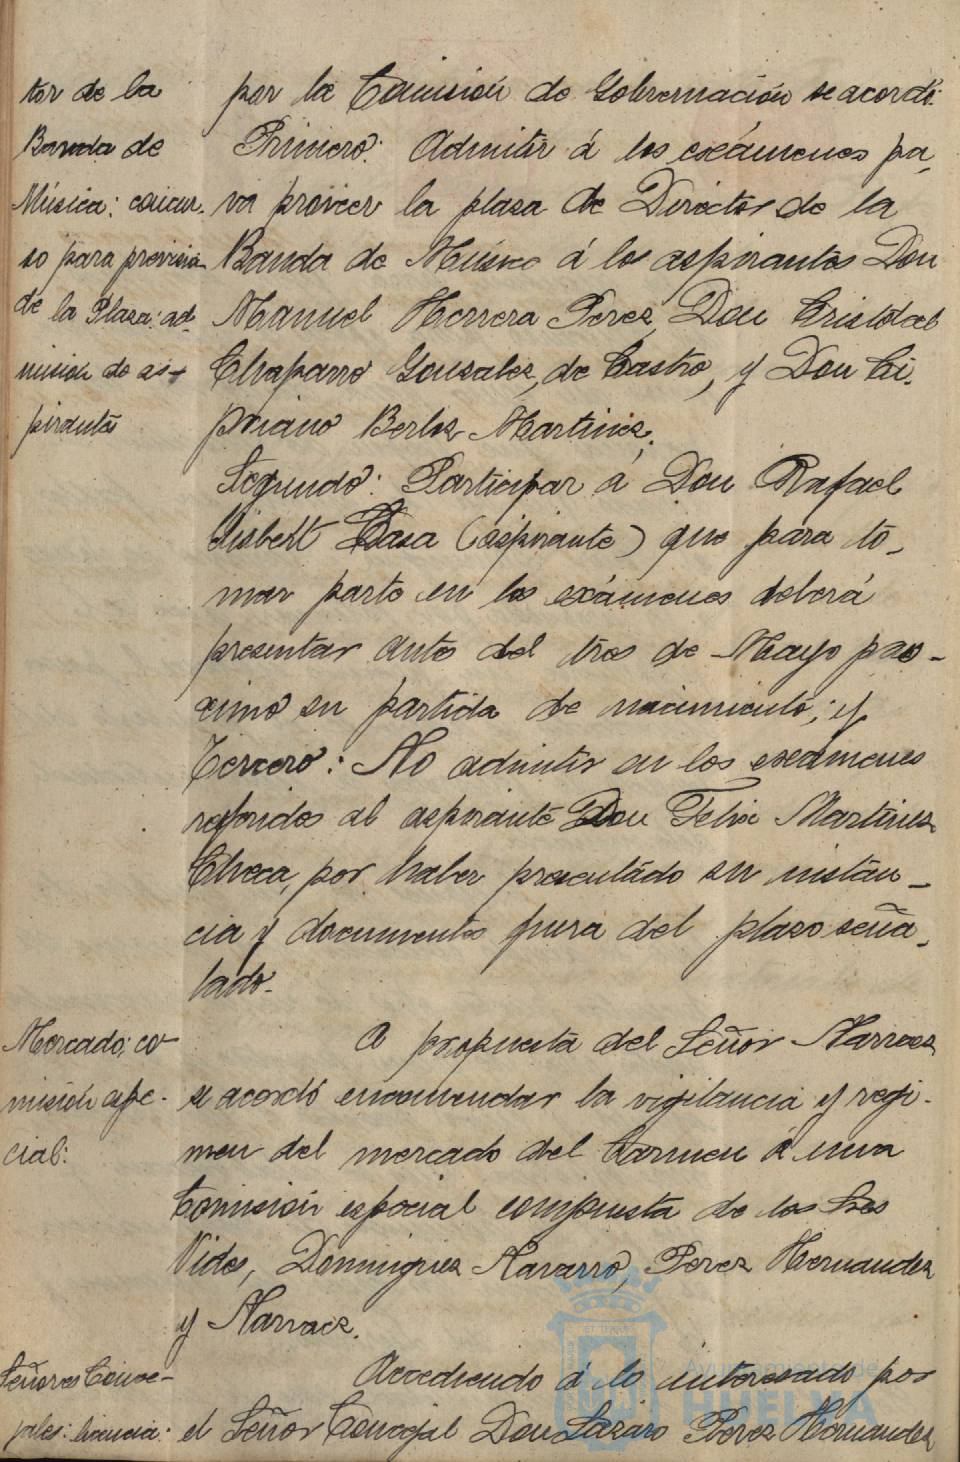 tor de la
Banda de
Música: concur-
so para provisión
de la Plaza: ad-
misión de as-
pirantes
por la Comisión de Gobernación se acordó:
Primero: Admitir á los exámenes pa-
ra proveer la plaza de Director de la
Banda de Música á los aspirantes Don
Manuel Herrera Perez, Don Cristobal
Chaparro Gonzalez, de Castro, y Don Ci-
priano Berloz Martinez.
Segundo: Participar á Don Rafael
Gisbert Casa (aspirante) que para to-
mar parte en los exámenes deberá
presentar antes del tres de Mayo pro-
ximo su partida de nacimiento; y
Tercero: No admitir en los exámenes
referidos al aspirante Don Felix Martinez
Checa, por haber presentado su instan-
cia y documentos fuera del plazo seña-
lado.
Mercado: co-
misión espe-
cial:
A propuesta del Señor Narvaez
se acordó encomendar la vigilancia y regi-
men del mercado del Carmen á una
Comisión especial compuesta de los Sres
Vides, Dominguez Navarro, Perez Hernandez
y Narvaez.
Señores Conce-
jales: licencia:
Accediendo á lo interesado por
el Señor Concejal Don Lázaro Perez Hernandez
Ayuntamiento de
HUELVA